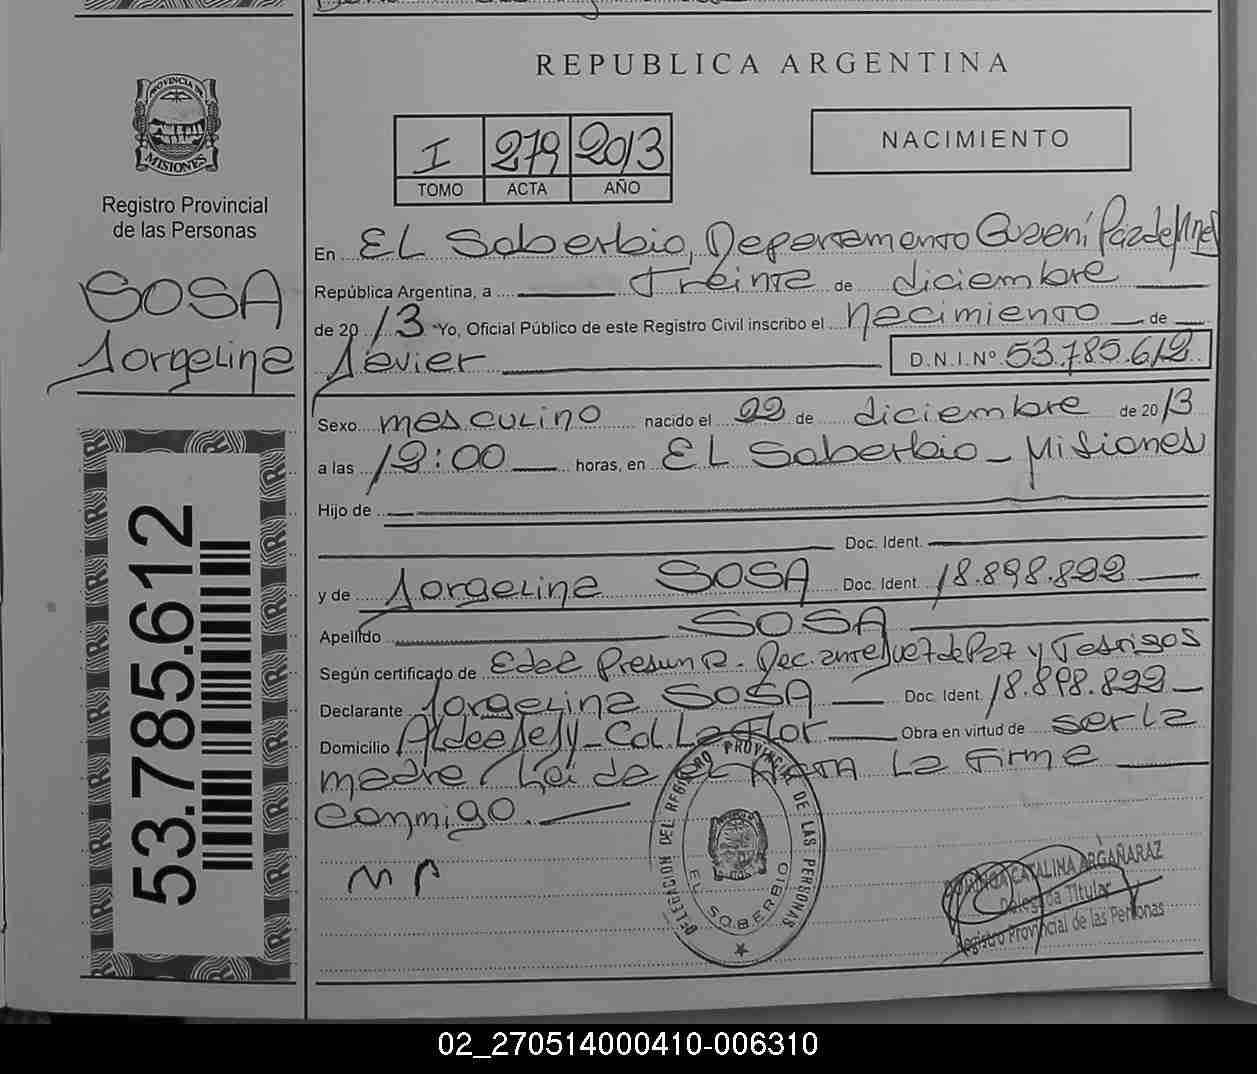 REPUBLICA ARGENTINA
PROVINCIA DE
MISIONES
Registro Provincial
de las Personas
SOSA
Jorgelina
53.785.612
I 279 2013
TOMO ACTA AÑO
NACIMIENTO
En EL Soberbio, Departamento Guaraní
República Argentina, a Treinta de diciembre
de 20 13 Yo, Oficial Público de este Registro Civil inscribo el nacimiento de
Javier D.N.I.Nº 53.785.612
Sexo masculino nacido el 22 de diciembre de 20 13
a las 19:00 horas, en EL Soberbio - Misiones
Hijo de
Doc. Ident.
y de Jorgelina SOSA Doc. Ident. 18.898.899
Apellido SOSA
Según certificado de Edad Presunta. Dec. ante Juez de Paz y Testigos
Declarante Jorgelina SOSA Doc. Ident. 18.898.899
Domicilio Aldea Jejy - Col. La Flor Obra en virtud de ser la
madre Leída el Acta La Firma
conmigo.
DELEGACION DEL REGISTRO PROVINCIAL DE LAS PERSONAS
EL SOBERBIO
CATALINA ARGAÑARAZ
Delegada Titular
Registro Provincial de las Personas
02_270514000410-006310